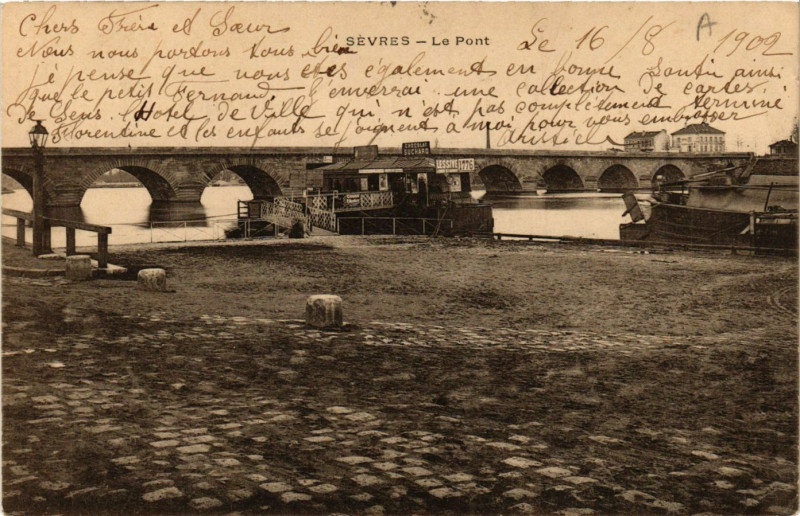 Chers Frère et Soeur
SÈVRES – Le Pont
Le 16/8 1902
A
Nous nous portons tous bien
j'epense que vous etes également en bonne Santé ainsi
que le petit Fernand. J'enverrai une collection de cartes
de Sens. l'Hotel de Ville qui n'est pas complètement terminé
Florentine et les enfants se joignent à moi pour vous embrasser
aristide
CHOCOLAT
SUCHARD